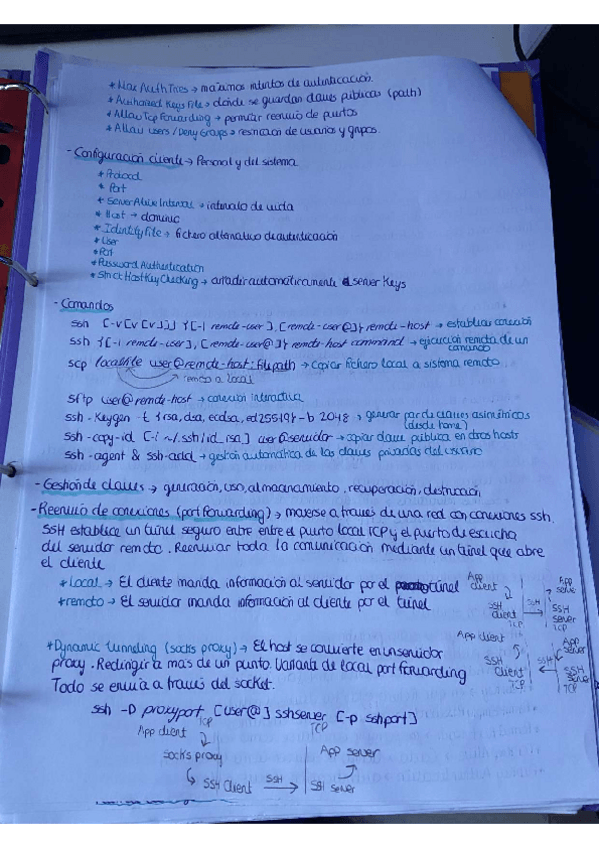 * Max Auth Tries → máximos intentos de autenticación.
* Authorized Keys File → donde se guardan claves públicas (path)
* Allow Tcp Forwarding → permitir reenvio de puertos
* Allow Users / Deny Groups → restricción de usuarios y grupos.
- Configuración cliente → Personal y del sistema
* Protocol
* Port
* Server Alive Interval → intervalo de vida
* Host → dominio
* Identity File → fichero alternativo de autenticación
* User
* Port
* Password Authentication
* Strict Host Key Checking → añadir automáticamente server keys
- Comandos
ssh [-v[v[v]]] {[-l remote-user], [remote-user@]} remote-host → establecer conexión
ssh {[-l remote-user], [remote-user@]} remote-host command → ejecución remota de un comando
scp localfile user@remote-host:filepath → copiar fichero local a sistema remoto
remoto a local
sftp user@remote-host → conexión interactiva
ssh-keygen -t {rsa, dsa, ecdsa, ed25519} -b 2048 → generar par de claves asimétricas
(desde home)
ssh-copy-id [-i ~/.ssh/id_rsa] user@servidor → copiar clave pública en otros hosts
ssh-agent & ssh-add → gestión automática de las claves privadas del usuario
- Gestión de claves → generación, uso, almacenamiento, recuperación, destrucción
- Reenvio de conexiones (port forwarding) → moverse a través de una red con conexiones ssh.
SSH establece un túnel seguro entre entre el puerto local TCP y el puerto de escucha
del servidor remoto. Reenviar toda la comunicación mediante un túnel que abre
el cliente
* local → El cliente manda información al servidor por el túnel
App client
SSH client
TCP
SSH
App server
SSH server
TCP
* remoto → El servidor manda información al cliente por el túnel
App client
SSH client
TCP
SSH
App server
SSH server
TCP
* Dynamic tunneling (socks proxy) → El host se convierte en un servidor
proxy. Redirigir a más de un punto. Variante de local port forwarding
Todo se envía a través del socket.
ssh -D proxyport [user@] sshserver [-p sshport]
TCP
TCP
App client
Socks proxy
App server
SSH client
SSH
SSH server